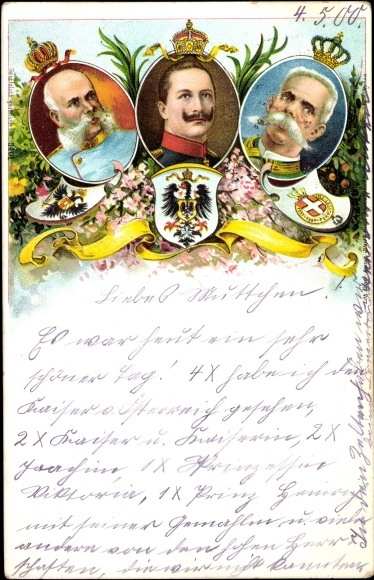 4. 5. 00.
Liebes Muttchen.
Es war heut ein sehr
schöner Tag! 4 X habe ich den
Kaiser v. Österreich gesehen,
2 X Kaiser u. Kaiserin, 2 X
Joachim, 1 X Prinzessin
Viktoria, 1 X Prinz Heinrich
mit seiner Gemahlin u. viele
andere von den hohen Herr-
schaften, die wir nicht kannten.